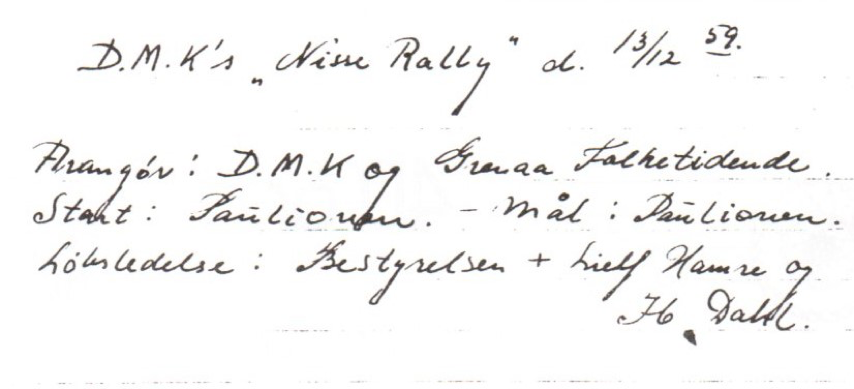 D.M.K's „Nisse Rally" d. 13/12 59.
Arangør: D.M.K og Grenaa Folketidende.
Start: Paulionen. - Mål: Paulionen.
Løbsledelse: Bestyrelsen + Lielf Hamre og
Ib. Dahl.